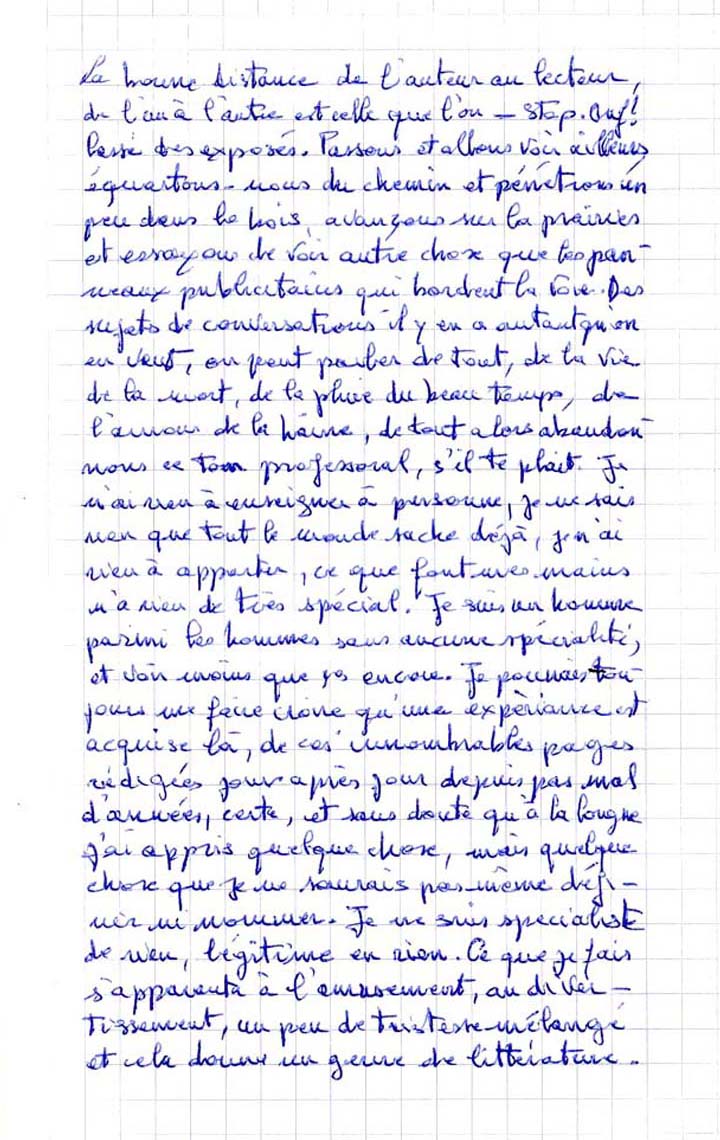 La bonne distance de l'auteur au lecteur,
de l'un à l'autre est celle que l'on – stop. Ouf!
lassé des exposés. Passons et allons voir ailleurs
équartons-nous du chemin et pénétrons un
peu dans le bois, avançons sur la prairies
et essayons de voir autre chose que les pan-
neaux publicitaires qui bordent la voie. Des
sujets de conversations il y en a autant qu'on
en veut, on peut parler de tout, de la vie
de la mort, de la pluie du beau temps, de
l'amour de la haine, de tout alors abandon-
nons ce ton professoral, s'il te plait. Je
n'ai rien à enseigner à personne, je ne sais
rien que tout le monde sache déjà, je n'ai
rien à apporter, ce que font mes mains
n'a rien de très spécial. Je suis un homme
parmi les hommes sans aucune spécialité,
et voir moins que ça encore. Je pourrais tou-
jours me faire croire qu'une expèriance est
acquise là, de ces innombrables pages
rédigées jour après jour depuis pas mal
d'années, certe, et sans doute qu'à la longue
j'ai appris quelque chose, mais quelque
chose que je ne saurais pas même défi-
nir ni nommer. Je ne suis specialiste
de rien, légitime en rien. Ce que je fais
s'apparente à l'amusement, au diver-
tissement, un peu de tristesse mélangé
et cela donne un genre de littérature.